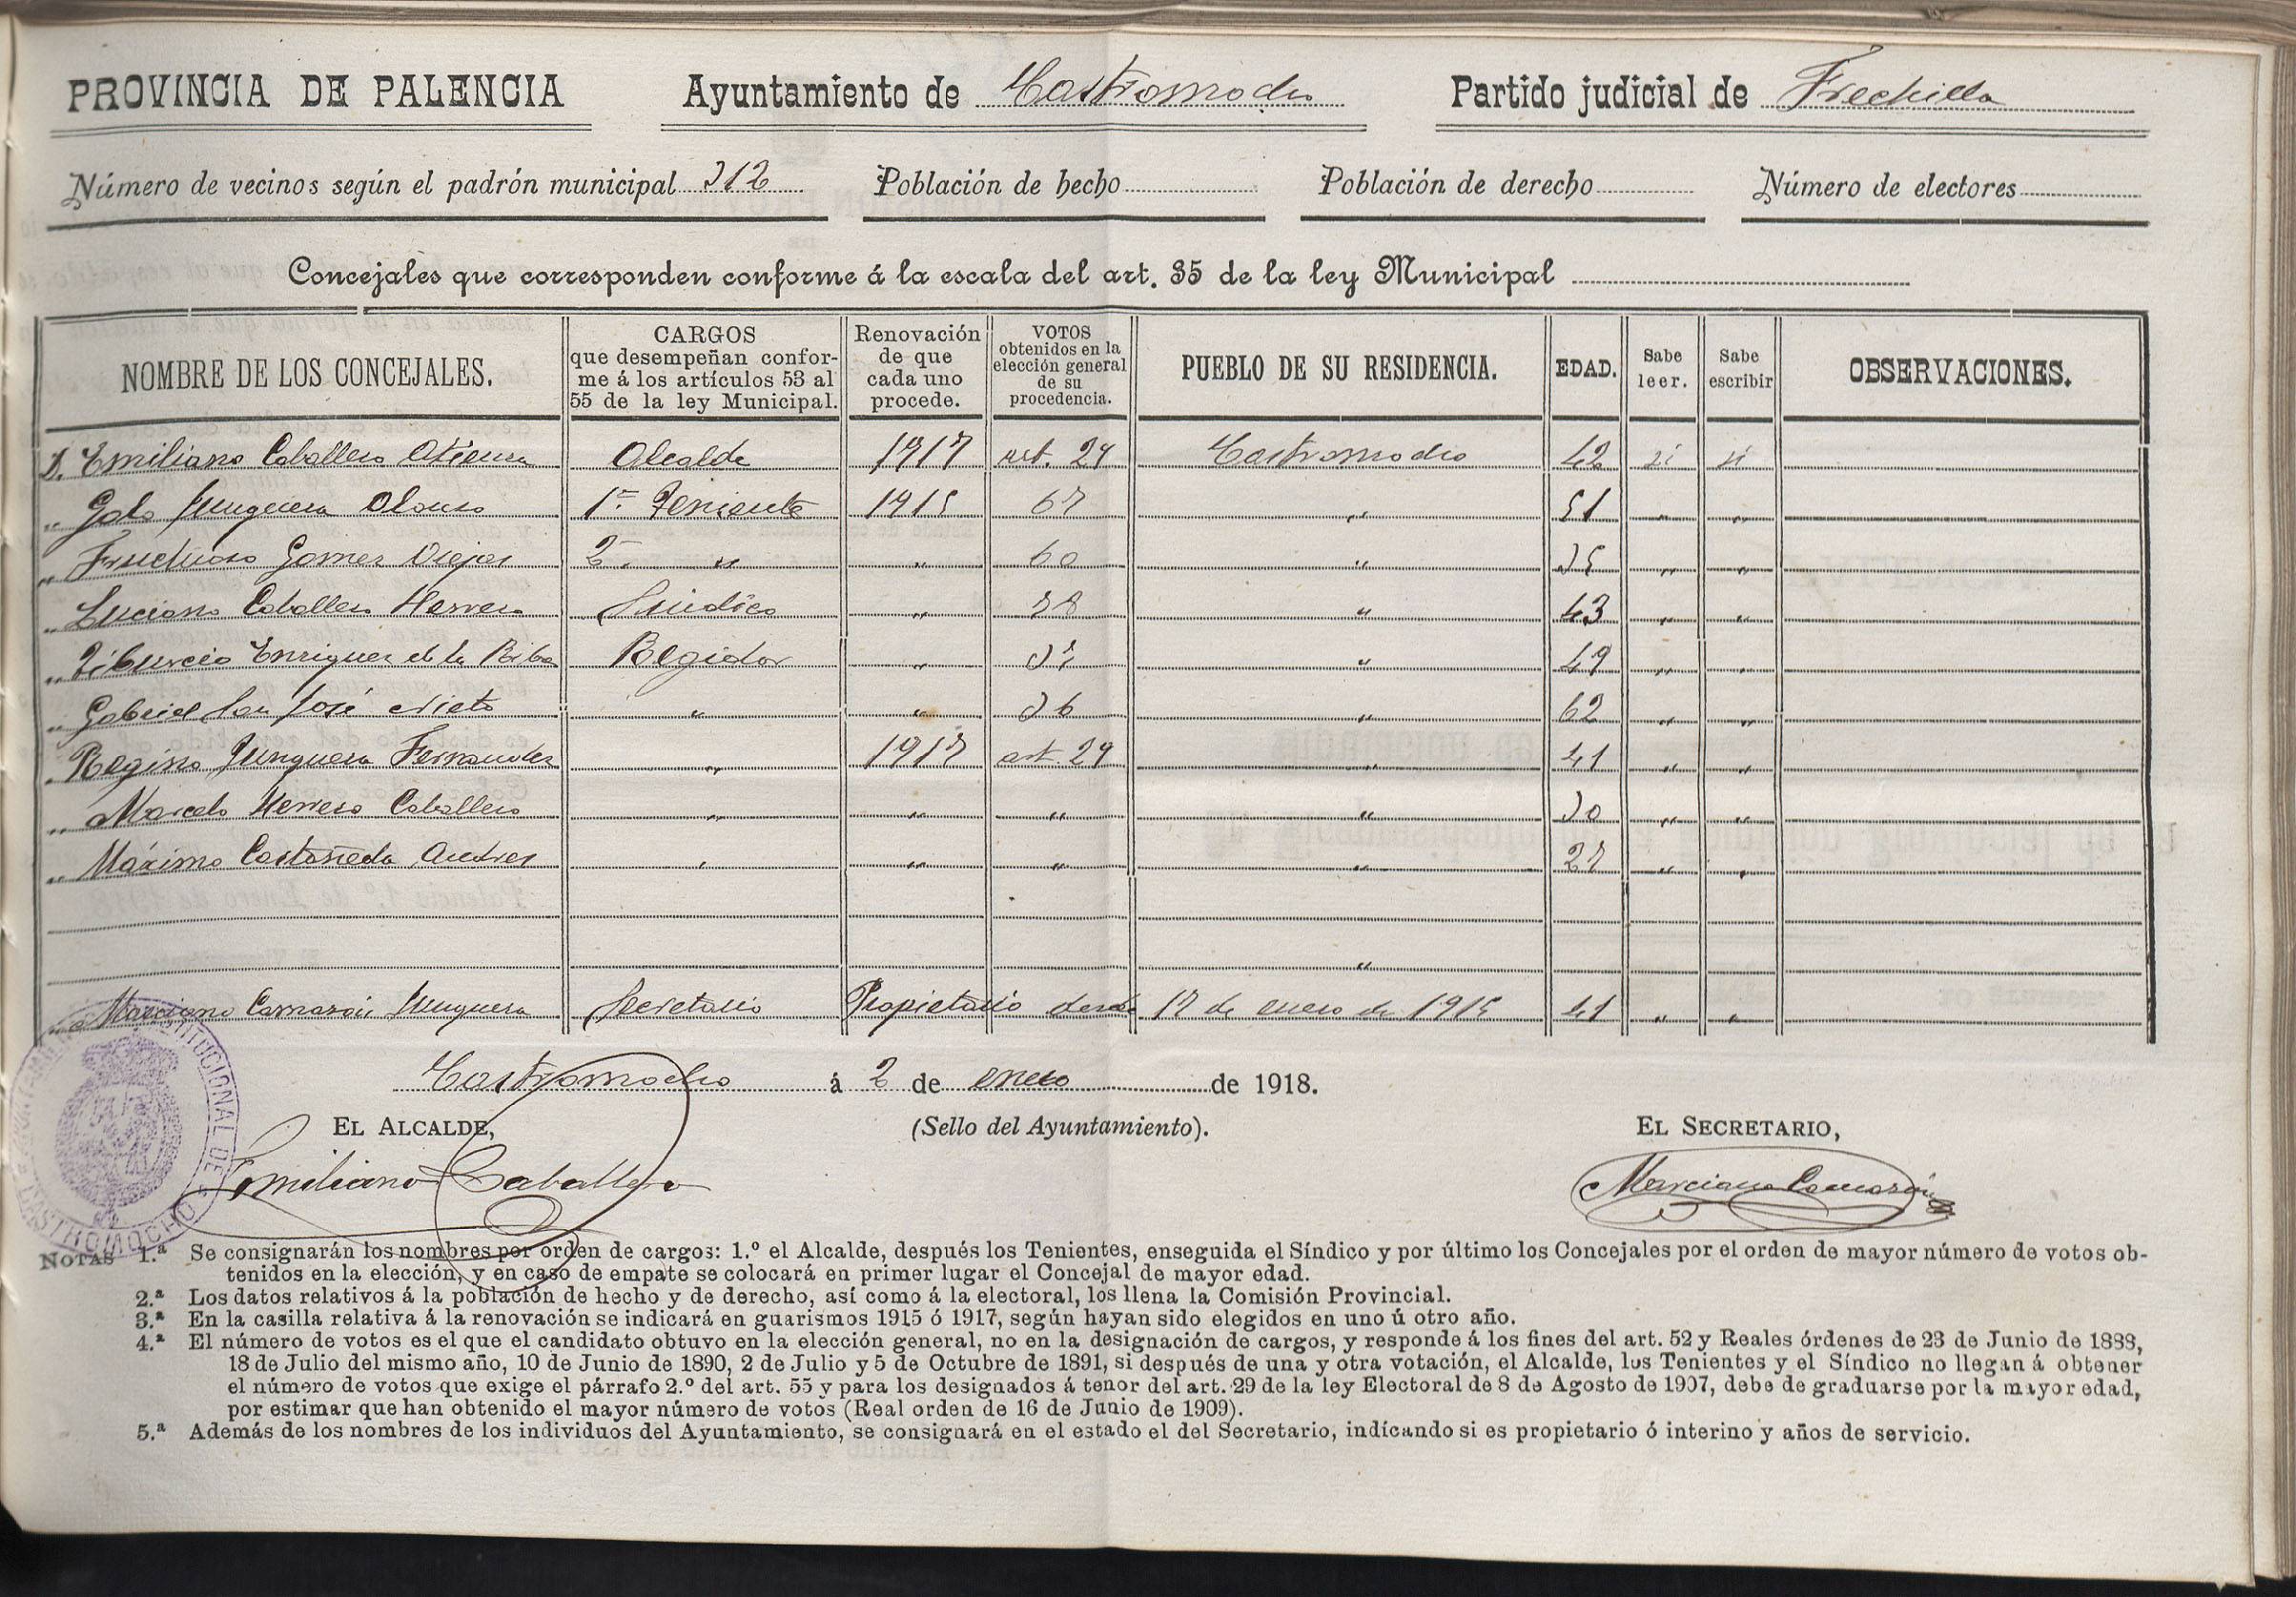 PROVINCIA DE PALENCIA Ayuntamiento de Castromocho Partido judicial de Frechilla
Número de vecinos según el padrón municipal 312 Población de hecho Población de derecho Número de electores
Concejales que corresponden conforme á la escala del art. 35 de la ley Municipal
NOMBRE DE LOS CONCEJALES. CARGOS que desempeñan conforme á los artículos 53 al 55 de la ley Municipal. Renovación de que cada uno procede. VOTOS obtenidos en la elección general de su procedencia. PUEBLO DE SU RESIDENCIA. EDAD. Sabe leer. Sabe escribir OBSERVACIONES.
D. Emiliano Caballero Atienza Alcalde 1917 art. 29 Castromocho 42 si si
" Galo Junquera Alonso 1er Teniente 1915 67 " 51 " "
" Fructuoso Gomez Viejas 2º " " 60 " 35 " "
" Luciano Caballero Herrero Sindico " 38 " 43 " "
" Tiburcio Enriquez de la Riba Regidor " " 49 " "
" Gabriel San José Nieto " " 36 " 62 " "
" Regino Junquera Fernandez " 1917 art. 29 " 41 " "
" Marcelo Herrero Caballero " " " " 30 " "
" Máximo Castañeda Andres " " " " 27 " "
"
" Marciano Camazón Junquera Secretario Propietario desde 17 de enero de 1915 41 " "
Castromocho á 2 de enero de 1918.
EL ALCALDE, (Sello del Ayuntamiento). EL SECRETARIO,
Emiliano Caballero Marciano Camazón
AYUNTAMIENTO CONSTITUCIONAL DE CASTROMOCHO
NOTAS 1.ª Se consignarán los nombres por orden de cargos: 1.º el Alcalde, después los Tenientes, enseguida el Síndico y por último los Concejales por el orden de mayor número de votos ob-
tenidos en la elección, y en caso de empate se colocará en primer lugar el Concejal de mayor edad.
2.ª Los datos relativos á la población de hecho y de derecho, así como á la electoral, los llena la Comisión Provincial.
3.ª En la casilla relativa á la renovación se indicará en guarismos 1915 ó 1917, según hayan sido elegidos en uno ú otro año.
4.ª El número de votos es el que el candidato obtuvo en la elección general, no en la designación de cargos, y responde á los fines del art. 52 y Reales órdenes de 23 de Junio de 1888,
18 de Julio del mismo año, 10 de Junio de 1890, 2 de Julio y 5 de Octubre de 1891, si después de una y otra votación, el Alcalde, los Tenientes y el Síndico no llegan á obtener
el número de votos que exige el párrafo 2.º del art. 55 y para los designados á tenor del art. 29 de la ley Electoral de 8 de Agosto de 1907, debe de graduarse por la mayor edad,
por estimar que han obtenido el mayor número de votos (Real orden de 16 de Junio de 1909).
5.ª Además de los nombres de los individuos del Ayuntamiento, se consignará en el estado el del Secretario, indicando si es propietario ó interino y años de servicio.